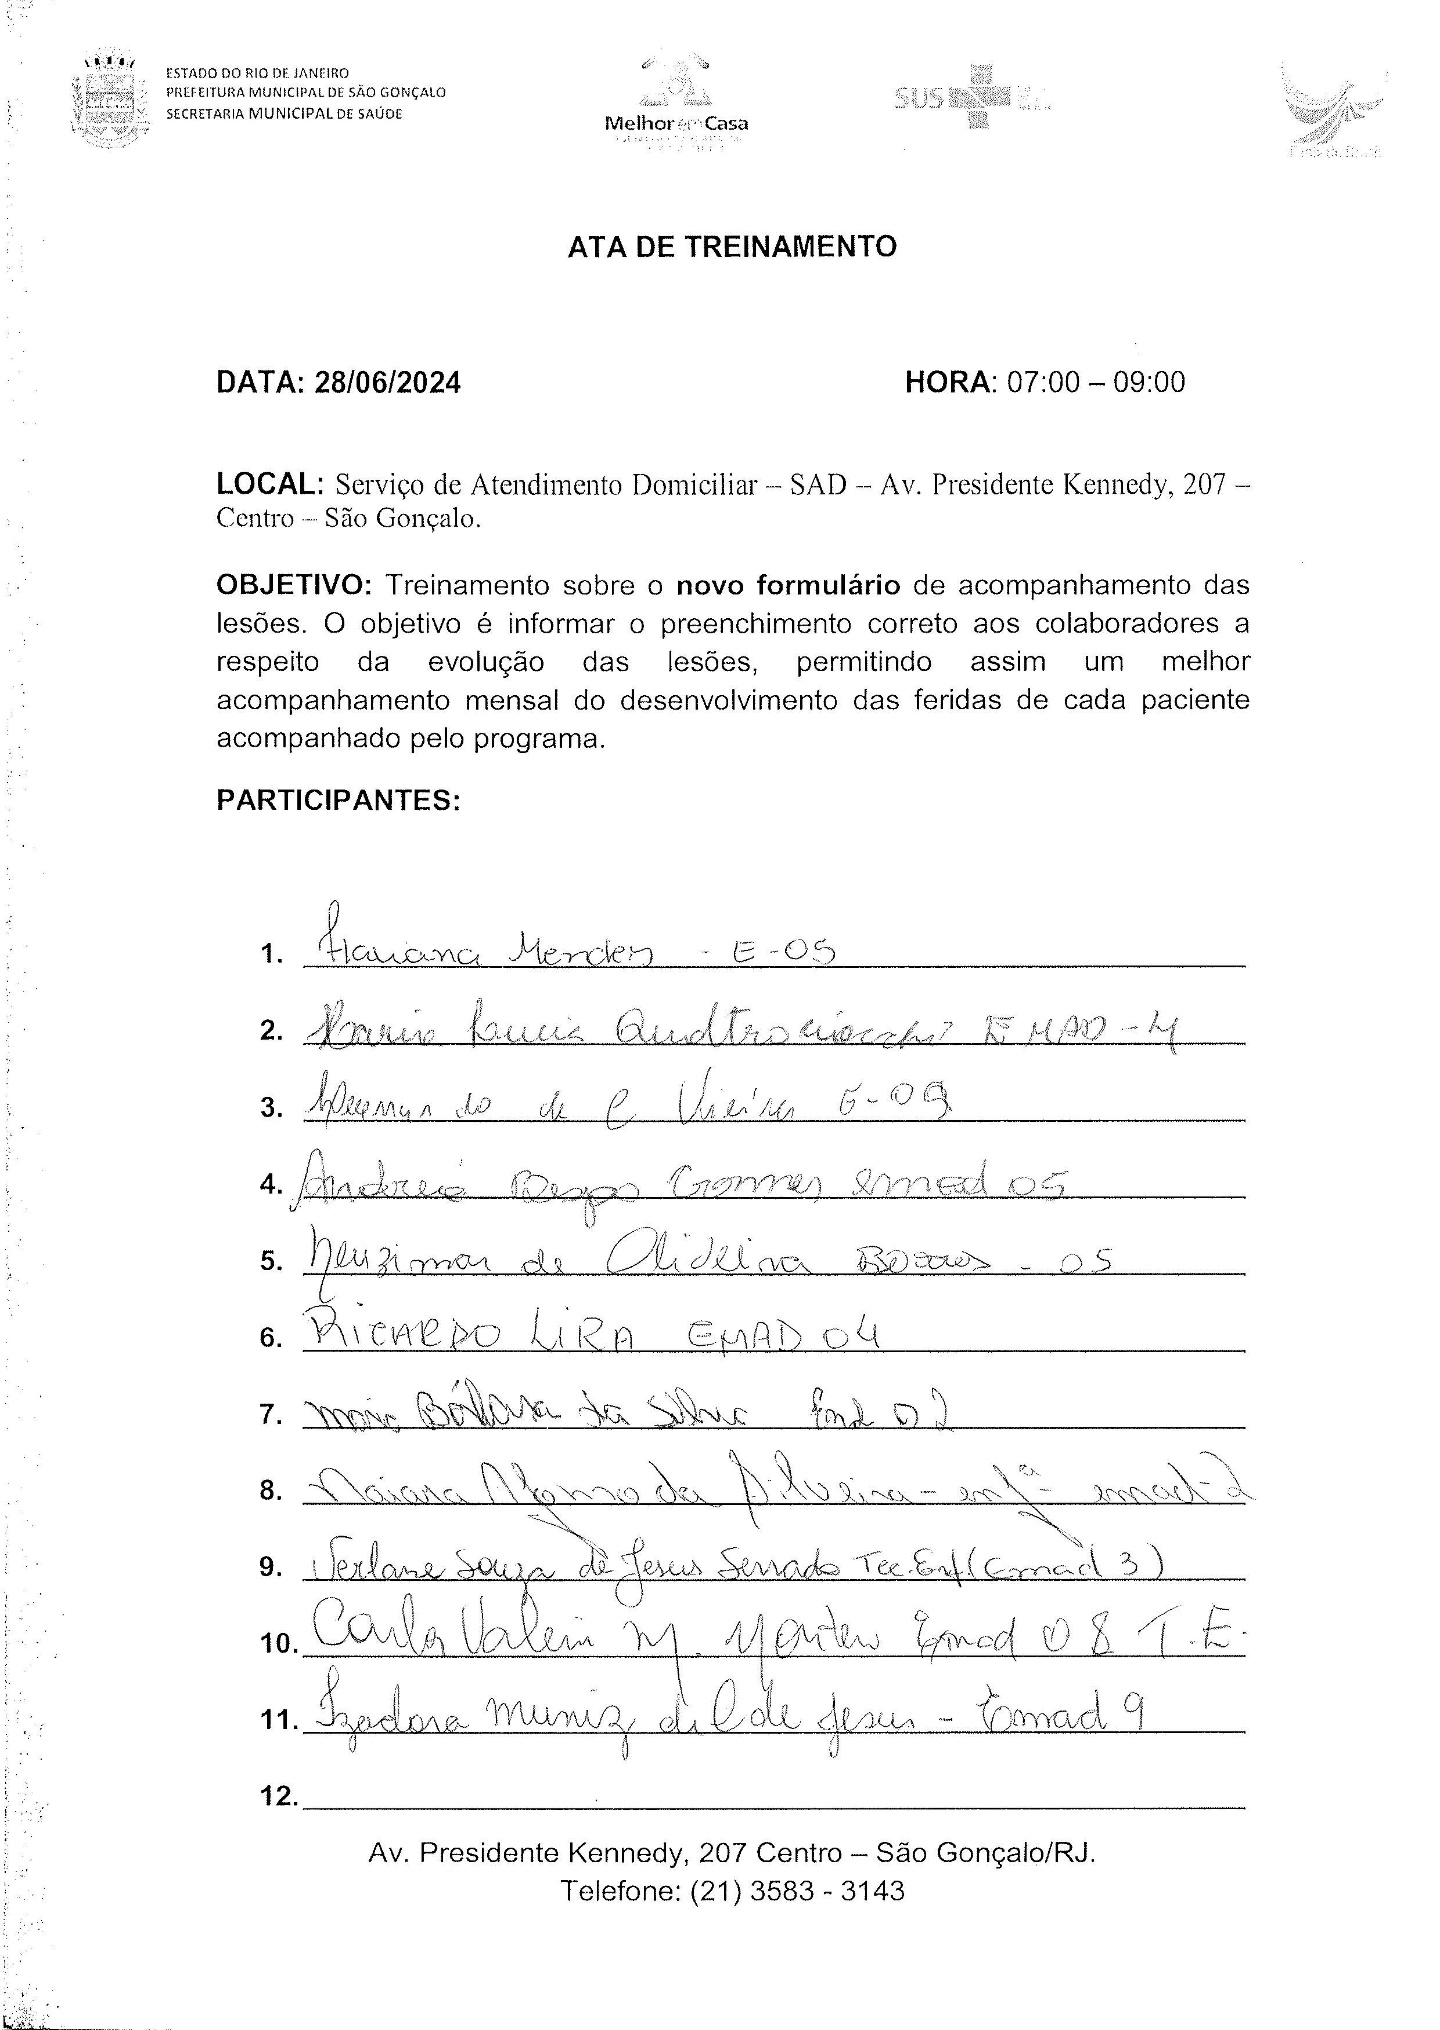 ESTADO DO RIO DE JANEIRO
PREFEITURA MUNICIPAL DE SÃO GONÇALO
SECRETARIA MUNICIPAL DE SAÚDE
Melhor em Casa
SUS
ATA DE TREINAMENTO
DATA: 28/06/2024 HORA: 07:00 – 09:00
LOCAL: Serviço de Atendimento Domiciliar – SAD – Av. Presidente Kennedy, 207 –
Centro – São Gonçalo.
OBJETIVO: Treinamento sobre o novo formulário de acompanhamento das
lesões. O objetivo é informar o preenchimento correto aos colaboradores a
respeito da evolução das lesões, permitindo assim um melhor
acompanhamento mensal do desenvolvimento das feridas de cada paciente
acompanhado pelo programa.
PARTICIPANTES:
1. Mendes - E-05
2. Lucia EMAD - 4
3. de C Vieira E-09
4. Andreia Gomes emad 05
5. Neuzimar de Oliveira - 05
6. RICARDO LIRA EMAD 04
7. Bárbara da Silva
8. Naiara Afonso da Silveira - enfª emad-2
9. Souza de Jesus Serrado Tec. Enf (Emad 3)
10. Carla M. Emad 08 T.E.
11. Izadora Muniz de Jesus - Emad 9
12.
Av. Presidente Kennedy, 207 Centro – São Gonçalo/RJ.
Telefone: (21) 3583 - 3143